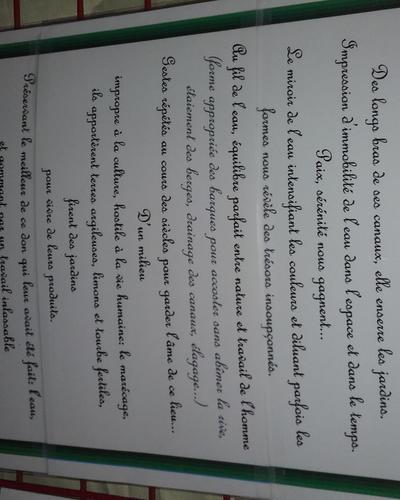 Des longs bras de ses canaux, elle enserre les jardins.
Impression d'immobilité de l'eau dans l'espace et dans le temps.
Paix, sérénité nous gagnent...
Le miroir de l'eau intensifiant les couleurs et diluant parfois les
formes nous révèle des trésors insoupçonnés.
Au fil de l'eau, équilibre parfait entre nature et travail de l'homme
(forme appropriée des barques pour accoster sans abîmer la rive,
étaiement des berges, drainage des canaux, élagage...)
Gestes répétés au cours des siècles pour garder l'âme de ce lieu...
D'un milieu
impropre à la culture, hostile à la vie humaine: le marécage,
ils apportèrent terres argileuses, limons et tourbe fertiles,
firent des jardins
pour vivre de leurs produits.
Préservant le meilleur de ce don qui leur avait été fait: l'eau,
et gommant par un travail inlassable